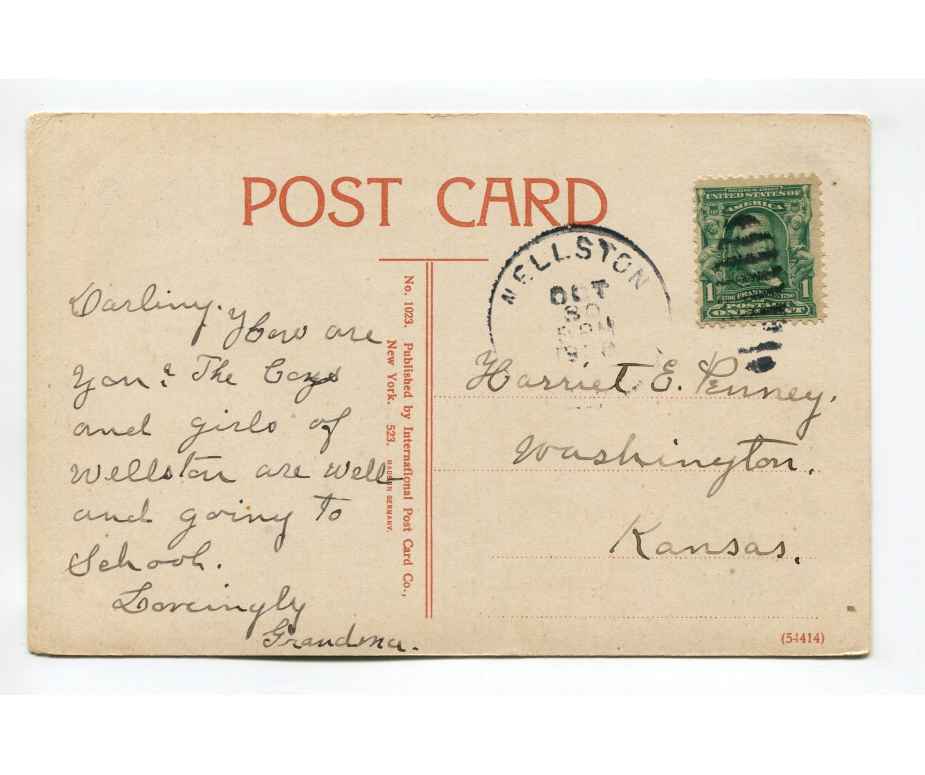 POST CARD
UNITED STATES OF
AMERICA
1 FRANKLIN 1
POSTAGE
ONE CENT
WELLSTON
OCT
30
PM
Darling.
How are
you? The boys
and girls of
Wellston are well
and going to
School.
Lovingly
Grandma.
No. 1023. Published by International Post Card Co.,
New York. 523. MADE IN GERMANY.
Harriet E. Penney,
Washington.
Kansas.
(54414)